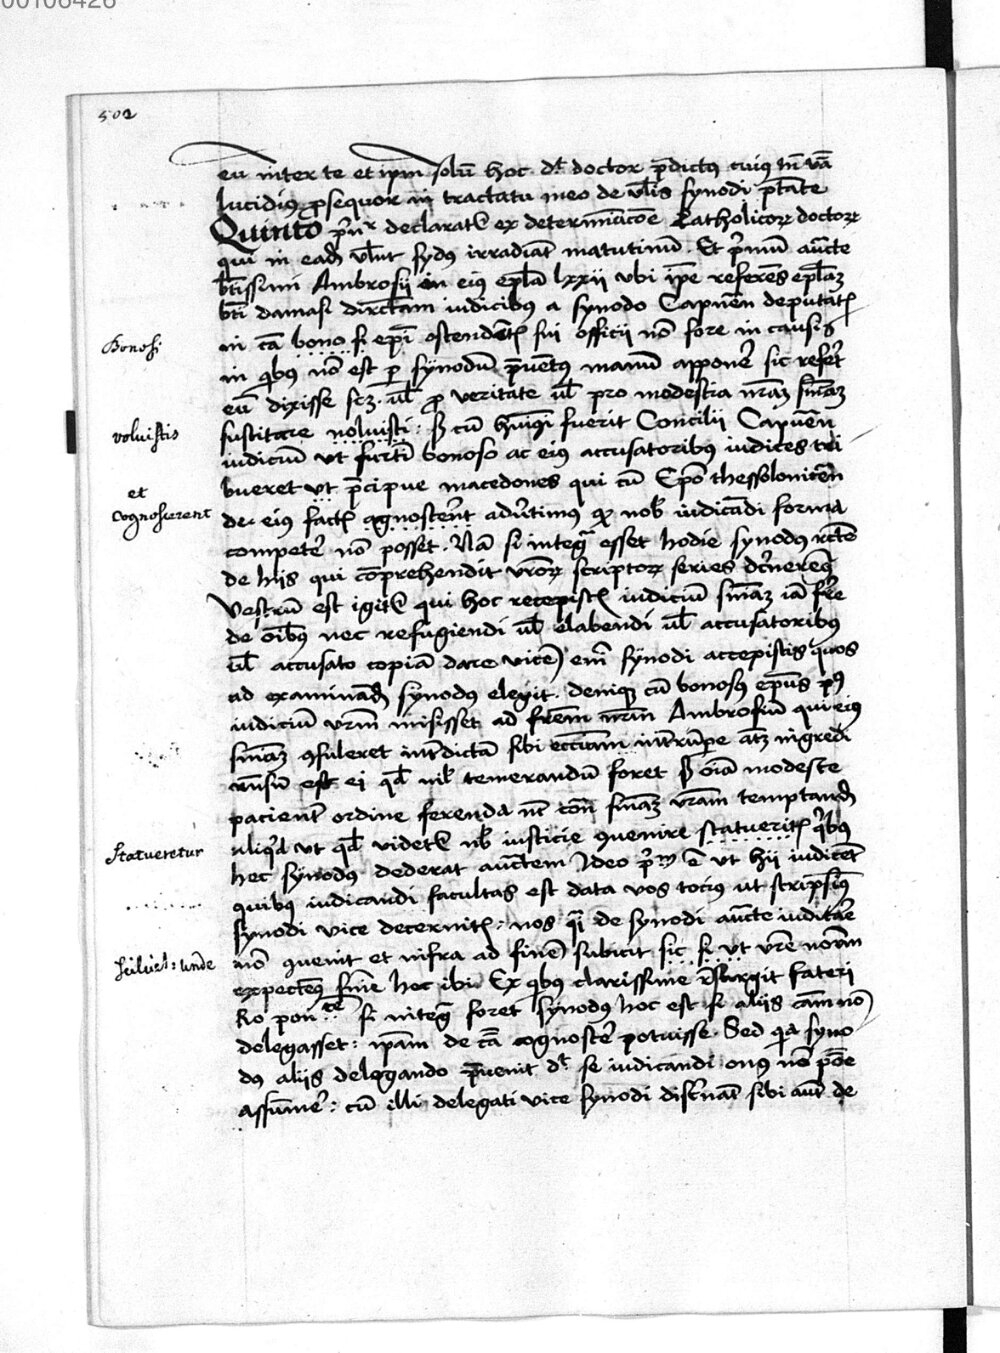 00106426
502
eū inter te et ip̄m solū hoc dt̄ doctor p̄dictus cuius in̄ vā
lucidius prosequor in tractatu meo de vl̄is synodi ptāte
Quinto declarat ex determīacōe Catholicoꝝ doctoꝝ
qui in eadē vl̄ut sydus irradiāt matutinū. Et p̄mū aūcte
bt̄issimi Ambrosij in eius ep̄la lxxij ubi ip̄e referēs ep̄lam
bt̄i damasi dirctam iudicibus a synodo Capuēn deputatꝭ
in cā bono si ep̄i ostendētꝭ sui officii nō fore in causis
in qͥbus nō est per synodū p̄uētus manum apponēr sic refert
eū dixisse scꝫ. vl̄ pro veritate vl̄ pro modestia nrām sniām
sustitare noluisti: s̄ cū hmōi fuerit Concilii Capuēn
iudiciū ut furti bonoso ac eius accusatoribus iudices tri
bueret ut p̄cipue macedones qui cū Ep̄o thessolonicēn
de eius factꝭ agnoscerēt aduertimus qꝫ nob̄ iudicādi forma
competēr nō posset. Nā si integra esset hodie synodus rcte
de hijs qui cōprehendit vroꝝ scriptoꝝ series
Vestrū est igitꝝ qui hoc recepistꝭ iudiciū sniām
de oībus nec refugiendi vl̄ elabendi vl̄ accusatoribus
vl̄ accusato copiā dare vicē em̄ synodi accepistis quos
ad examinādū synodus elegit. deniqꝫ cū bonosus ep̄us
iudiciū vrm̄ misisset ad frēm nrm̄ Ambrosiū qui eius
sniām ꝯsuleret int̄dictā sibi ecc̄iam ingredi
rn̄sū est ei qd̄ nil temerandū foret s̄ oīa modeste
pacienter ordine ferenda nec cōn sniām vrām temptandū
aliqͥd ut qd̄ videtꝝ vob̄ iusticie ꝯuenire statueritꝭ qͥbus
hec synodus dederat auctem Ideo pͥm ē ut hij iudicēt
quibus iudicandi facultas est data vos tocius ut scripsimus
synodi vice decernitꝭ: nos qͣi de synodi aucte iudicāre
nō ꝯuenit et infra ad finē subicit sic si ut vrē nōrm̄
expectēus sniē hec ibi. Ex qͥbus clarissime rēsurgit fateri
Ro pontce si integra foret synodus hoc est si aliis cām nō
delegasset: ip̄am de cā cognoscēr potuisse. Sed qͣ syno
dus aliis delegando p̄uenit dt̄ se iudicandi onus nō poē
assumēr: cū illi delegati vice synodi disc̄nāt sibi aūt de
Bonosi
voluistis
et
cognoscerent
statueretur